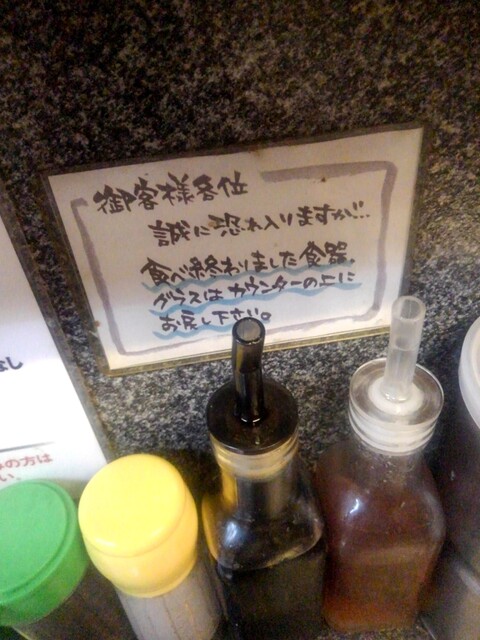 御客様各位
誠に恐れ入りますが…
食べ終わりました食器、
グラスはカウンターの上に
お戻し下さい。
なし
の方は
い。